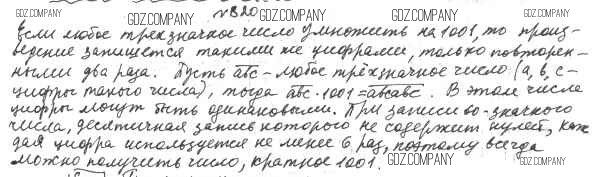 GDZ.COMPANY GDZ.COMPANY GDZ.COMPANY
№820
Если любое трехзначное число умножить на 1001, то произ-
ведение запишется такими же цифрами, только повторен-
ными два раза. Пусть abc - любое трёхзначное число (a, b, c -
цифры такого числа), тогда abc · 1001 = abcabc. В этом числе
цифры могут быть одинаковыми. При записи 60-значного
числа, десятичная запись которого не содержит нулей, каж
дая цифра используется не менее 6 раз, поэтому всегда
можно получить число, кратное 1001.
GDZ.COMPANY GDZ.COMPANY GDZ.COMPANY